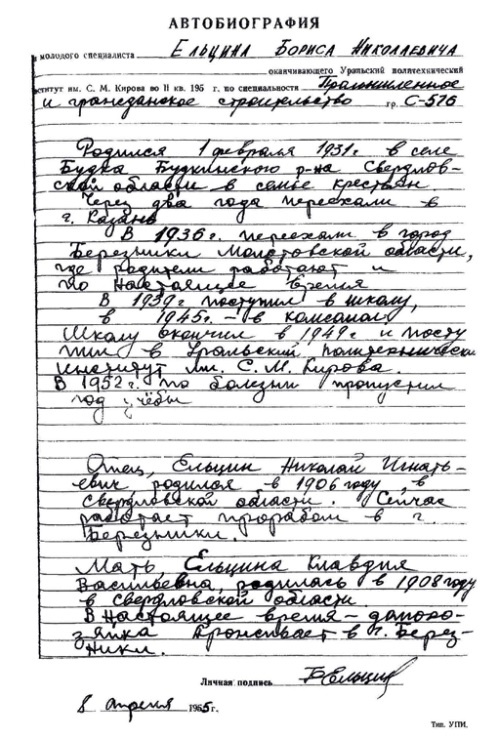 АВТОБИОГРАФИЯ
молодого специалиста Ельцина Бориса Николаевича
оканчивающего Уральский политехнический
институт им. С. М. Кирова во II кв. 195 г. по специальности Промышленное
и гражданское строительство гр. С-576
Родился 1 февраля 1931г. в селе
Будка Будкинского р-на Свердлов-
ской области в семье крестьян
Через два года переехали в
г. Казань
В 1936г. переехали в город
Березники Молотовской области,
где родители работают и
по настоящее время
В 1939г поступил в школу,
в 1945г. – в комсомол
Школу окончил в 1949г и посту
пил в Уральский политехнический
институт им. С. М. Кирова.
В 1952г. по болезни пропустил
год учёбы
Отец, Ельцин Николай Игнать-
евич родился в 1906 году, в
Свердловской области. Сейчас
работает прорабом в г.
Березники.
Мать, Ельцина Клавдия
Васильевна, родилась в 1908 году
в Свердловской области.
В настоящее время – домохо-
зяйка проживает в г. Берез-
ники.
Личная подпись БЕльцин
8 апреля 1955г.
Тип. УПИ.